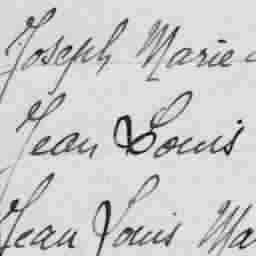 Joseph Marie
Jean Louis
Jean Louis Ma